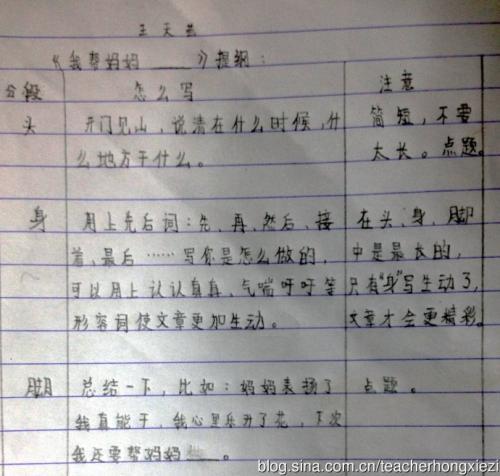 王天芸
《我帮妈妈____》提纲：
分段 怎么写 注意
头 开门见山，说清在什么时候，什 简短，不要
么地方干什么。 太长。点题。
身 用上先后词：先、再、然后、接 在头、身、脚
着、最后……写你是怎么做的， 中是最长的，
可以用上认认真真、气喘吁吁等 只有“身”写生动了，
形容词使文章更加生动。 文章才会更精彩。
脚 总结一下，比如：妈妈表扬了 点题。
我真能干，我心里乐开了花，下次
我还要帮妈妈____。
blog.sina.com.cn/teacherhongxiezi